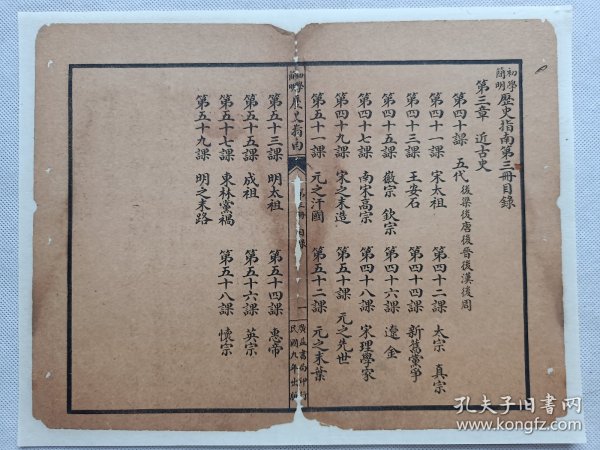 初學簡明歷史指南第三冊目錄
第三章 近古史
第四十課 五代 後梁後唐後晉後漢後周
第四十一課 宋太祖 第四十二課 太宗 真宗
第四十三課 王安石 第四十四課 新舊黨爭
第四十五課 徽宗 欽宗 第四十六課 遼 金
第四十七課 南宋高宗 第四十八課 宋理學家
第四十九課 宋之末造 第五十課 元之先世
第五十一課 元之汗國 第五十二課 元之末葉
初學簡明 歷史指南 目錄 一 廣益書局印行 民國九年出版
第五十三課 明太祖 第五十四課 惠帝
第五十五課 成祖 第五十六課 英宗
第五十七課 東林黨禍 第五十八課 懷宗
第五十九課 明之末路
孔夫子旧书网
www.kongfz.com